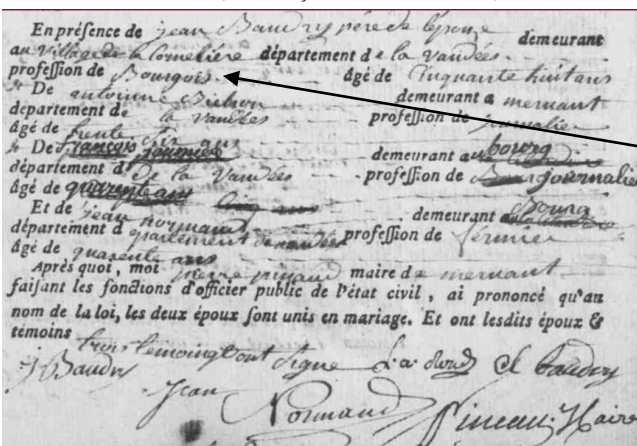 En présence de jean Baudry père de lépoux demeurant
au village de la Cornelière département de la vandées
profession de Bourgois. âgé de Cinquante huit ans
De antoinne demeurant a mernant
département de la vandées profession de journalier
âgé de trente six ans
De françois demeurant au bourg
département de la Vandées profession de journalier
âgé de quarente ans
Et de jean normand demeurant Bourg
département d département de vandées profession de fermier
âgé de quarente ans
Après quoi, moi pierre pineaud maire de mernant
faisant les fonctions d'officier public de l'état civil, ai prononcé qu'au
nom de la loi, les deux époux sont unis en mariage. Et ont lesdits époux &
témoins trois temoing ont signe
J Baudry Baudry
Jean Normand Pineau Maire